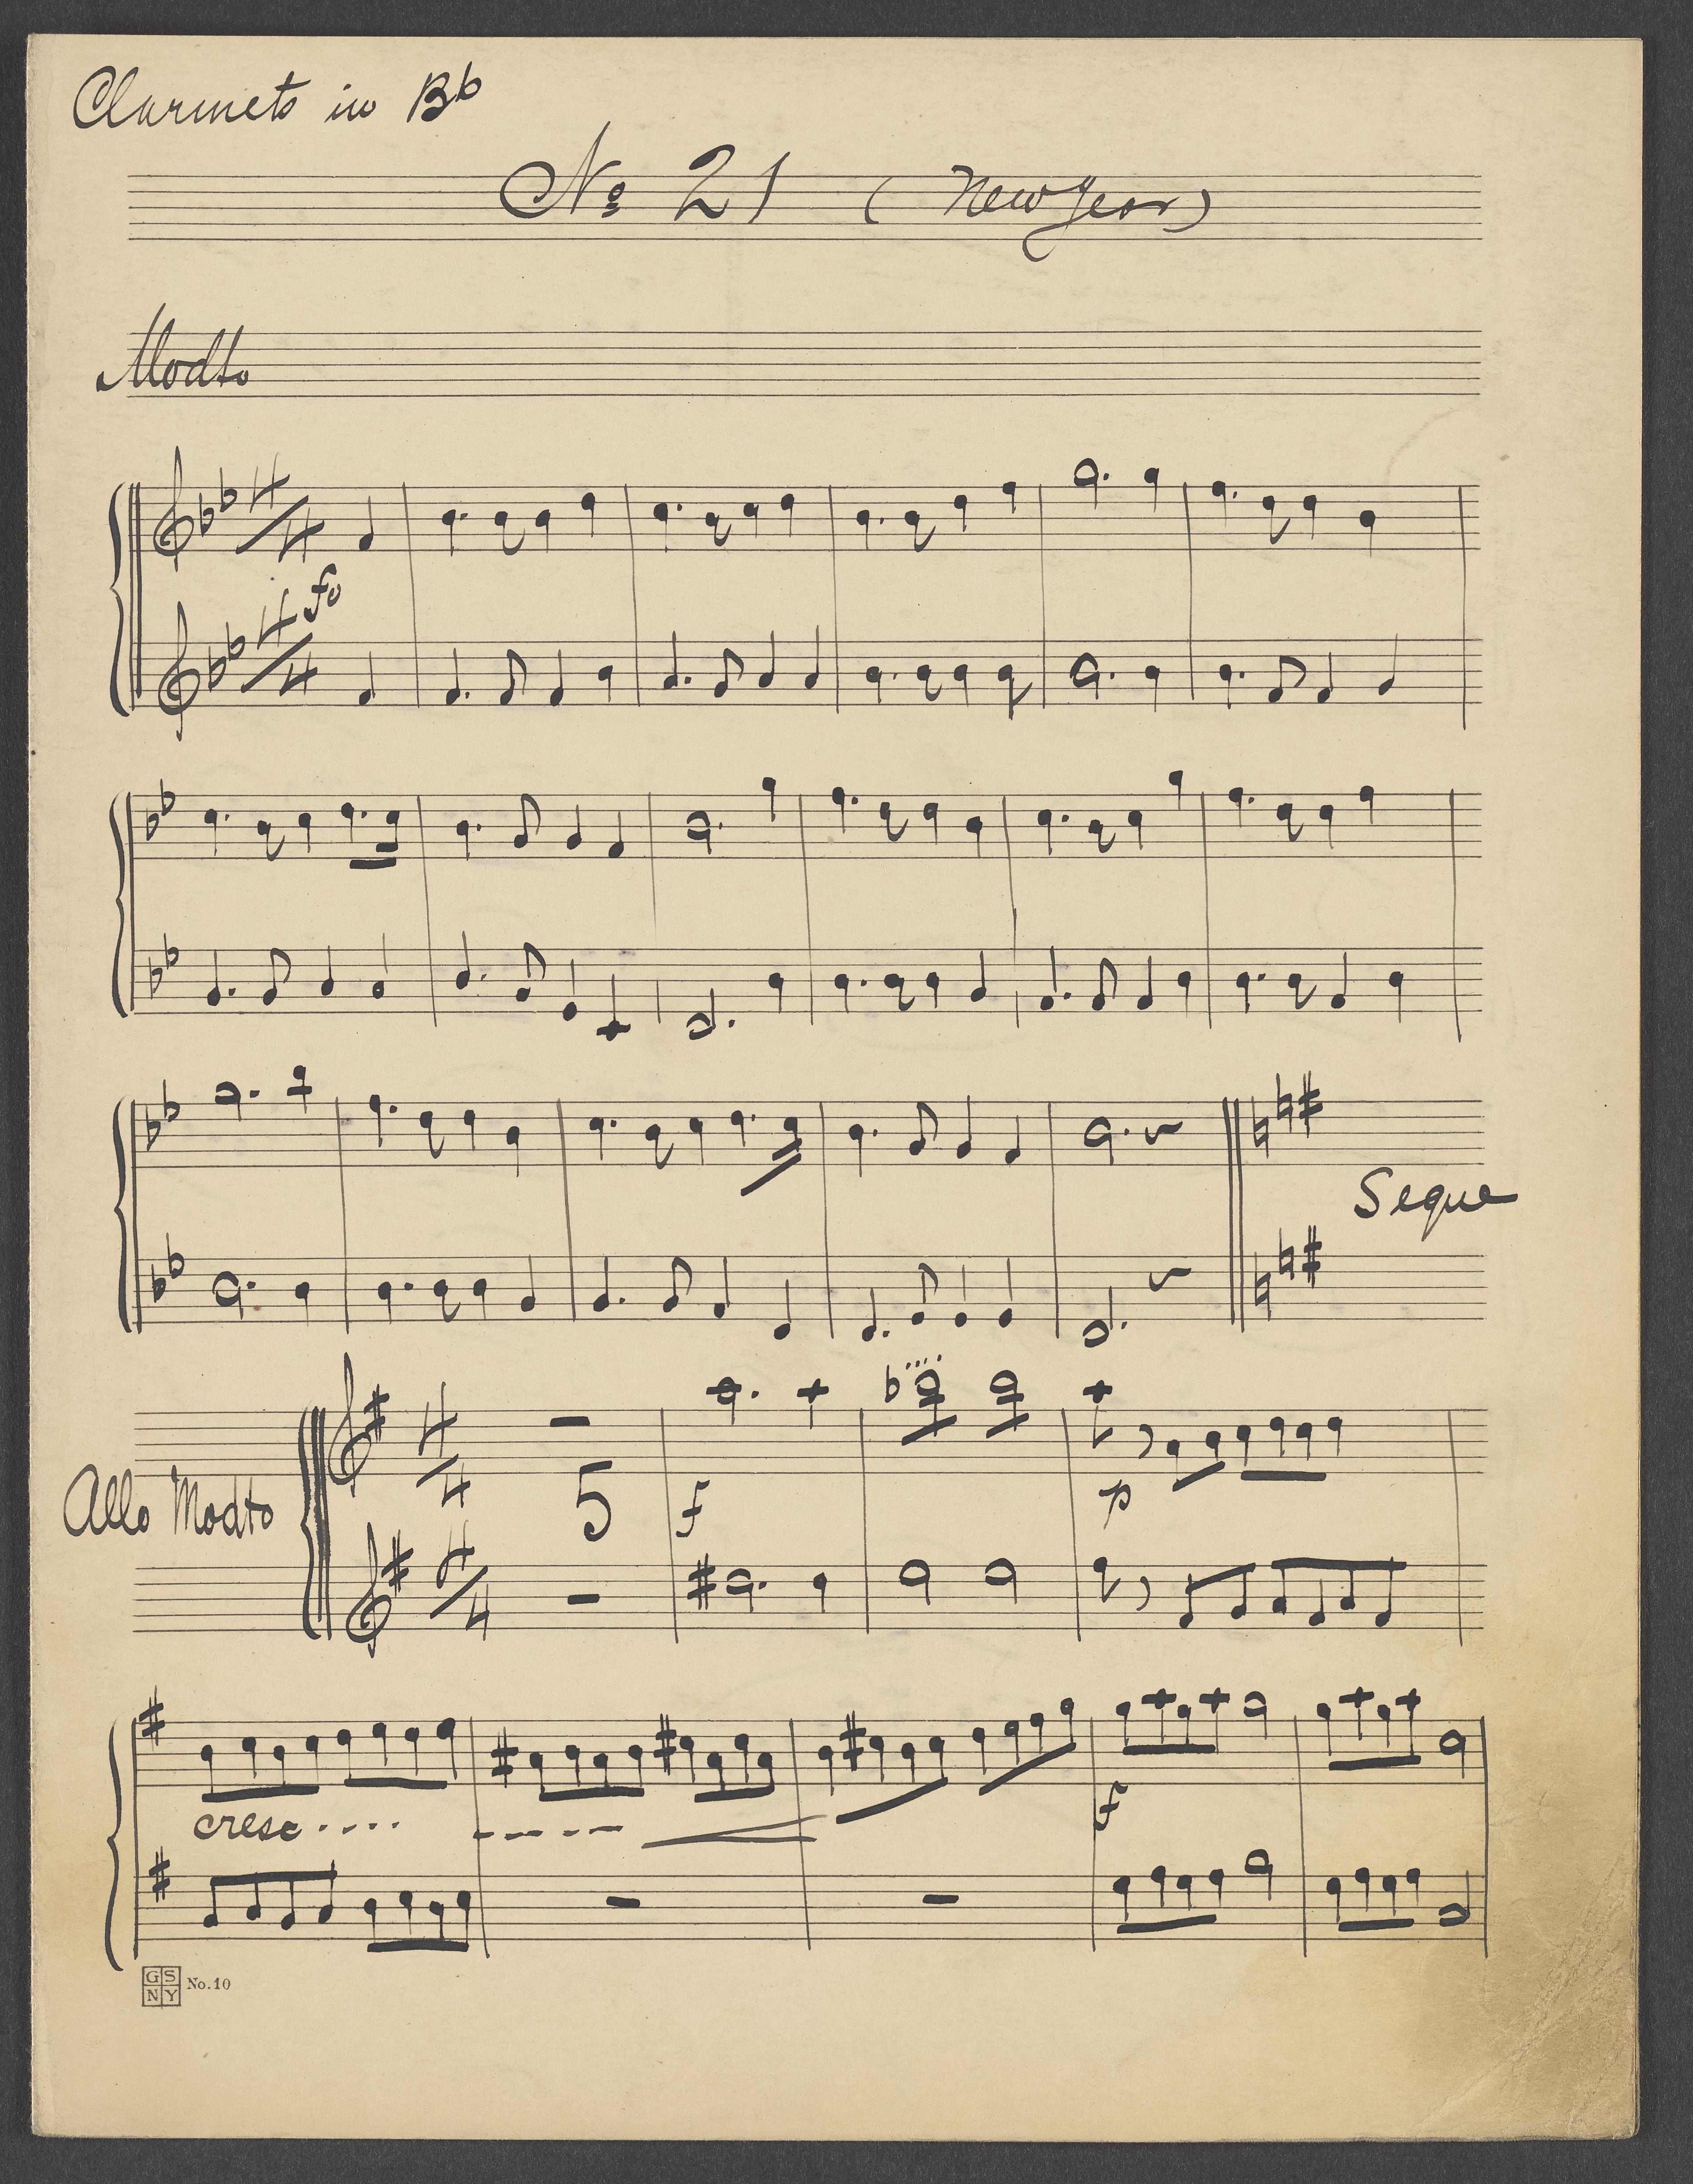 Clarinets in Bb
No 21 (New Year)
Modto
4/4
fo
4/4
Segue
Allo Modto
4/4
5
f
p
4/4
cresc.....
f
GS
NY
No.10